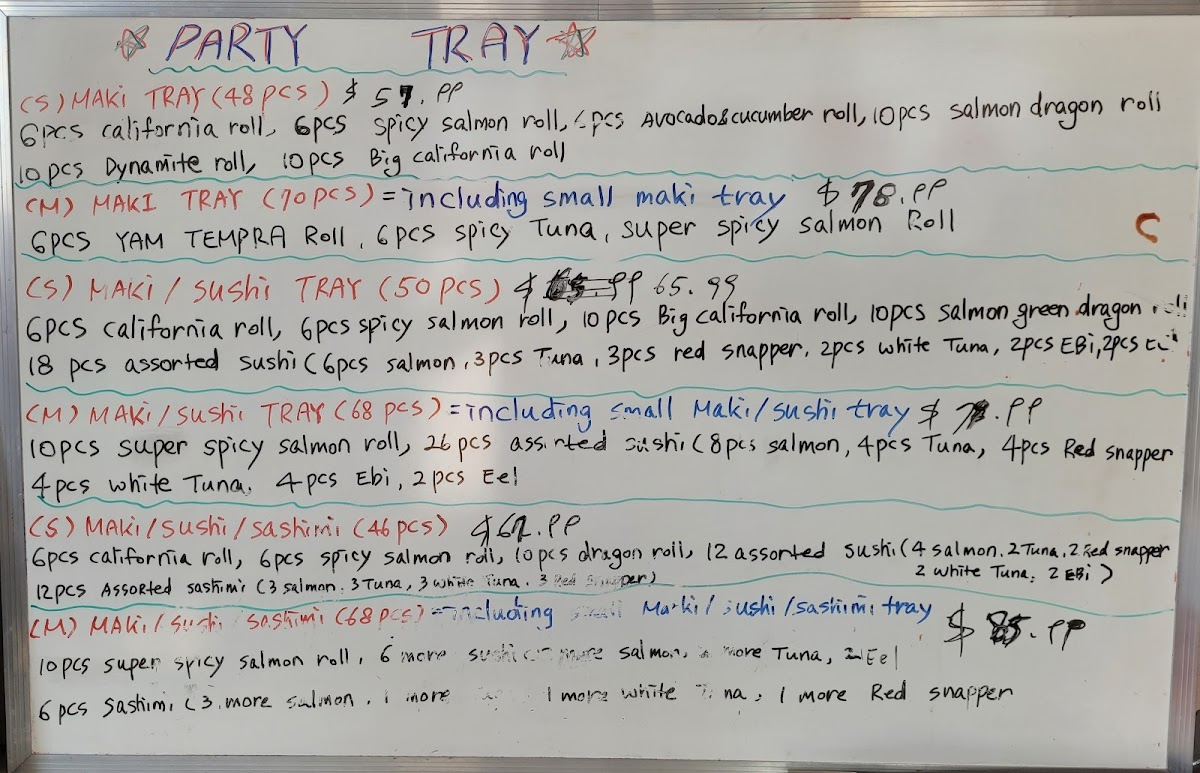 PARTY TRAY
(S) MAKI TRAY (48 pcs) $ 57.99
6pcs california roll, 6pcs spicy salmon roll, 6pcs Avocado&cucumber roll, 10pcs salmon dragon roll
10 pcs Dynamite roll, 10pcs Big california roll
(M) MAKI TRAY (70 pcs) = including small maki tray $ 78.99
6pcs YAM TEMPRA Roll, 6pcs spicy Tuna, super spicy salmon Roll
(S) MAKI / sushi TRAY (50 pcs) $ 65.99
6pcs california roll, 6pcs spicy salmon roll, 10pcs Big california roll, 10pcs salmon green dragon roll
18 pcs assorted sushi (6pcs salmon, 3pcs Tuna, 3pcs red snapper, 2pcs white Tuna, 2pcs EBi, 2pcs
(M) MAKI/sushi TRAY (68 pcs) = including small Maki/sushi tray $ .99
10pcs super spicy salmon roll, 26pcs assirted sushi (8pcs salmon, 4pcs Tuna, 4pcs Red snapper
4pcs white Tuna, 4pcs Ebi, 2pcs Eel
(S) MAKI/sushi/sashimi (46pcs) $ .99
6pcs california roll, 6pcs spicy salmon roll, 10pcs dragon roll, 12 assorted sushi (4 salmon, 2 Tuna, 2 Red snapper
2 white Tuna, 2 EBi)
12pcs Assorted sashimi (3 salmon, 3 Tuna, 3 white Tuna, 3 Red snapper)
(M) MAKI/sushi/sashimi (68pcs) = including small Marki/sushi/sashimi tray $ 85.99
10pcs super spicy salmon roll, 6 more sushi more salmon, more Tuna, 2 Eel
6 pcs sashimi (3 more salmon, 1 more 1 more white Tuna, 1 more Red snapper